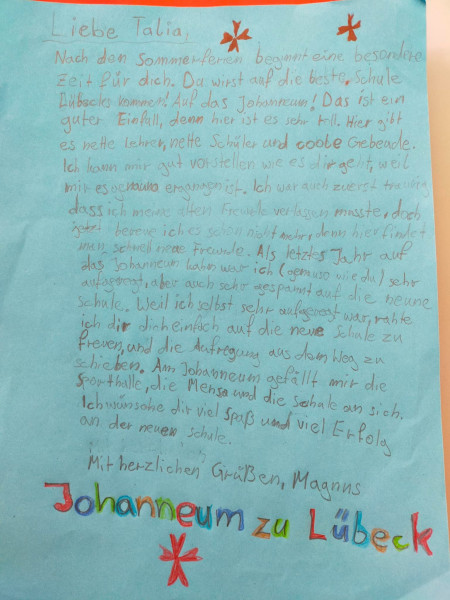 Liebe Talia,
Nach den Sommerferien beginnt eine besondere
Zeit für dich. Du wirst auf die beste Schule
Lübecks kommen! Auf das Johanneum! Das ist ein
guter Einfall, denn hier ist es sehr toll. Hier gibt
es nette Lehrer, nette Schüler und coole Gebeude.
Ich kann mir gut vorstellen wie es dir geht, weil
mir es genauso ergangen ist. Ich war auch zuerst traurig
dass ich meine alten Freunde verlassen musste, doch
jetzt bereue ich es schon nicht mehr, denn hier findet
man schnell neue Freunde. Als letztes Jahr auf
das Johanneum kahm war ich (genauso wie du) sehr
aufgeregt, aber auch sehr gespannt auf die neune
Schule. Weil ich selbst sehr aufgeregt war, rahte
ich dir dich einfach auf die neue Schule zu
freuen, und die Aufregung aus dem Weg zu
schieben. Am Johanneum gefällt mir die
Sporthalle, die Mensa und die Schule an sich.
Ich wünsche dir viel Spaß und viel Erfolg
an der neuen Schule.
Mit herzlichen Grüßen, Magnus
Johanneum zu Lübeck